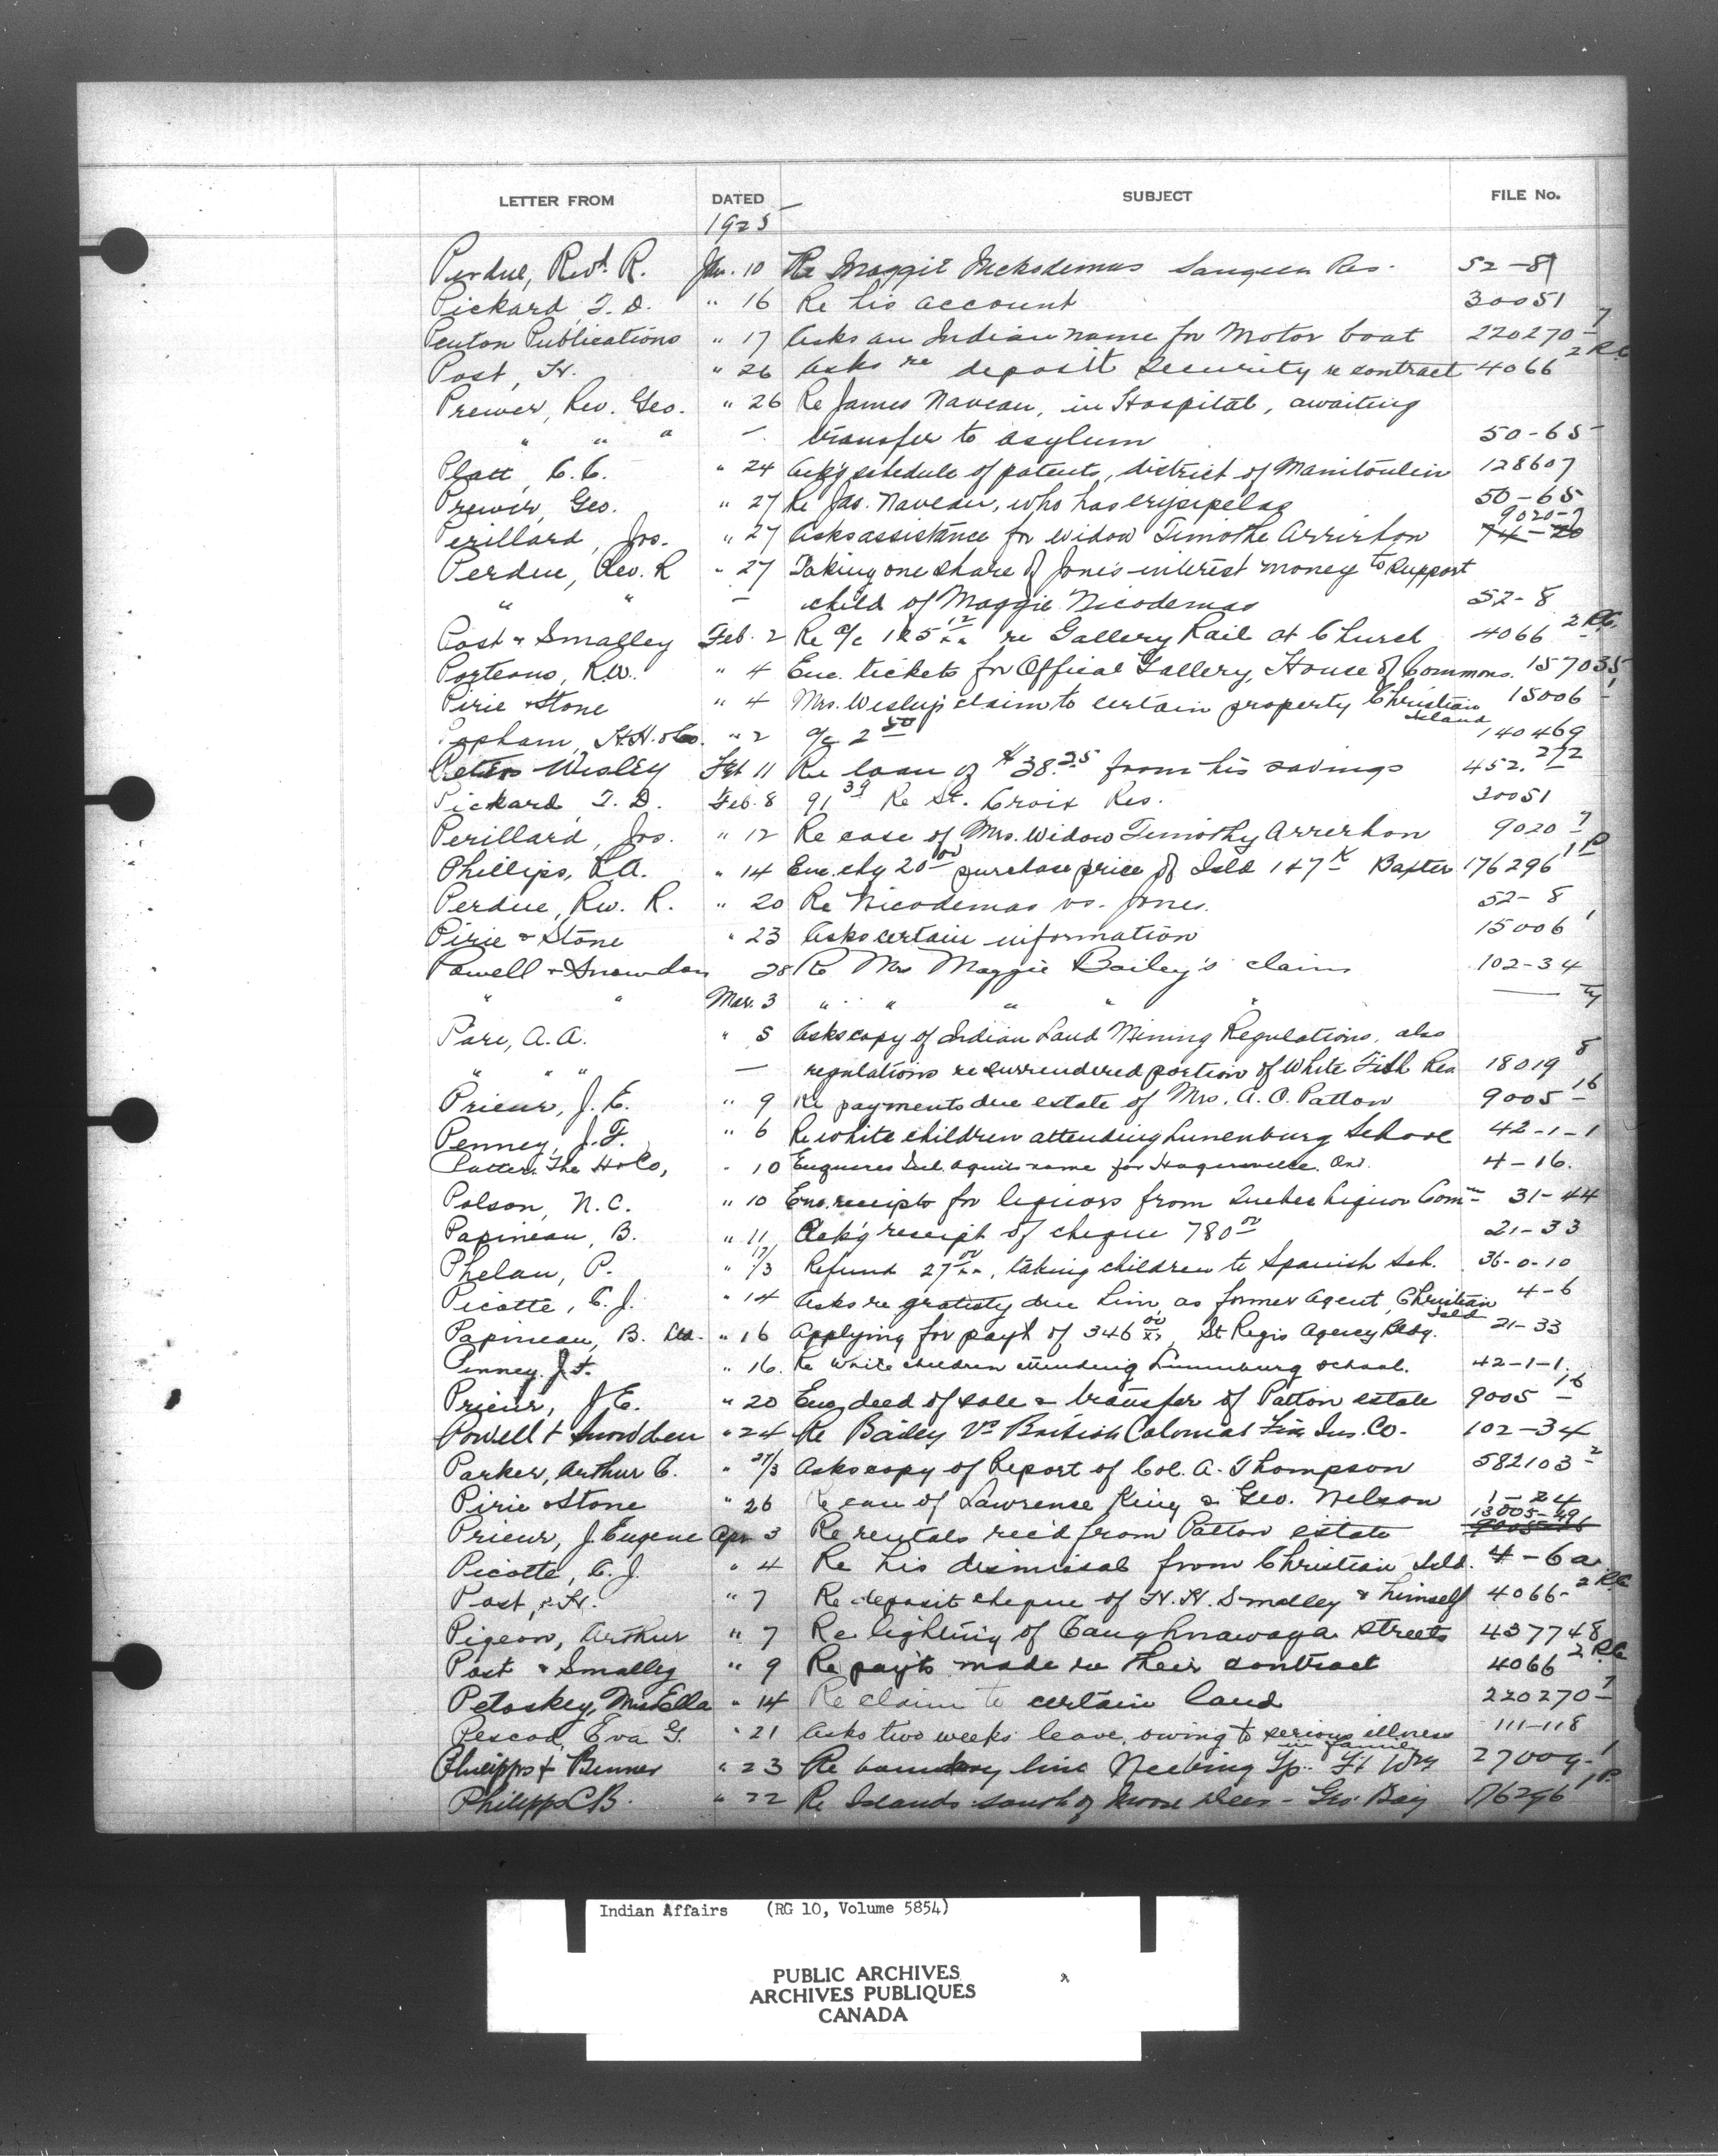 LETTER FROM DATED SUBJECT FILE No.
1925
Perdue, Revd. R. Jan. 10 Re Maggie Nickodemus Saugeen Res. 52-8
Pickard, T. D. " 16 Re his account 30051
Penton Publications " 17 Asks an Indian name for Motor boat 220270-7
Post, H. " 26 Asks re deposit security re contract 4066 2 RC
Prewer, Rev. Geo. " 26 Re James Naveau, in Hospital, awaiting
" " " — transfer to asylum 50-65
Platt, C.C. " 24 Ack'g schedule of patents, district of Manitoulin 128607
Prewer, Geo. " 27 Re Jas. Naveau, who has erysipelas 50-65
Perillard, Jos. " 27 Asks assistance for widow Timothe Arrirhon 74-20 9020-7
Perdue, Rev. R " 27 Taking one share of Jones interest money to support
" " — child of Maggie Nicodemas 52-8
Post & Smalley Feb. 2 Re a/c 125 12/xx re Gallery Rail at Church 4066 2 RC.
Porteous, R.W. " 4 Enc. tickets for Offical Gallery, House of Commons. 157035
Pirie & Stone " 4 Mrs. claim to certain property Christian Island 15006-1
Popham, H.H. & Co. " 2 a/c 2 50 140469
Peters Wesley Feb 11 Re loan of $38.25 from his savings 452.272
Pickard, T. D. Feb. 8 91 39 Re St. Croix Res. 30051
Perillard, Jos. " 12 Re case of Mrs. Widow Timothy Arrerhon 9020-7
Phillips, R.A. " 14 Enc. chq 20 00 purchase price of Isld 147 K Baxter 176296 1 P
Perdue, Rev. R. " 20 Re Nicodemas vs. Jones. 52-8
Pirie & Stone " 23 Asks certain information 15006 1
Powell & Snowdon 28 Re Mrs Maggie Bailey's claim 102-34
" " Mar. 3 " " " " "
Pare, A.A. " 5 Asks copy of Indian Land Mining Regulations, also
" " " — regulations re surrendered portion of White Fish Res 18019 8
Prieur, J.E. " 9 Re payments due estate of Mrs. A. O. Patton 9005-16
Penney, J.F. " 6 Re white children attending Lunenburg School 42-1-1
The H & Co, " 10 Enquires Ind. Agents name for Hagersville. Ont. 4-16.
Polson, N.C. " 10 Enc. receipts for liquors from Quebec Liquor Comn 31-44
Papineau, B. " 11 Ack'g receipt of cheque 780 00 21-33
Phelan, P. " 17/3 Refund 27 00/xx, taking children to Spanish Sch. 36-0-10
Picotte, C.J. " 14 Asks re gratuity due him, as former agent, Christian Isld 4-6
Papineau, B. " 16 Applying for pay't of 346 00/xx, St Regis Agency Bldg. 21-33
Penney. J.F. " 16. Re white children attending Lunenburg school. 42-1-1.
Prieur, J.E. " 20 Enc. deed of sale & transfer of Patton estate 9005-16
Powell & Snowden " 24 Re Bailey Vs British Colonial Fire Ins. Co. 102-34
Parker, Arthur C. " 27/3 Asks copy of Report of Col. A. Thompson 582103-2
Pirie & Stone " 26 Re case of Lawrence King & Geo. Nelson 1-24
Prieur, J. Eugene Apr 3 Re rentals rec'd from Patton estate 13005-49 9005-16
Picotte, C.J. " 4 Re his dismissal from Christian Isld. 4-6a
Post, H. " 7 Re deposit cheque of H.H. Smalley & himself 4066-2 RC
Pigeon, Arthur " 7 Re lighting of Caughnawaga Streets 437748
Post & Smalley " 9 Re pay'ts made re their contract 4066 2 RC
Petoskey, Mrs Ella " 14 Re claim to certain land 220270-7
Pescod, Eva G. " 21 Asks two weeks leave, owing to serious illness in family 111-118
Phillipps & Benner " 23 Re boundary line Neebing Tp. Ft Wm 27009-1
Philipps C B. " 22 Re Islands south of Moose Deer - Geo. Bay 176296 1 P.
Indian Affairs (RG 10, Volume 5854)
PUBLIC ARCHIVES
ARCHIVES PUBLIQUES
CANADA